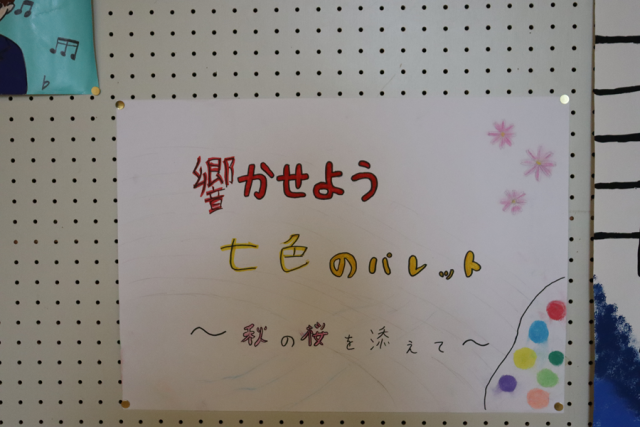 響かせよう
七色のパレット
～秋の桜を添えて～